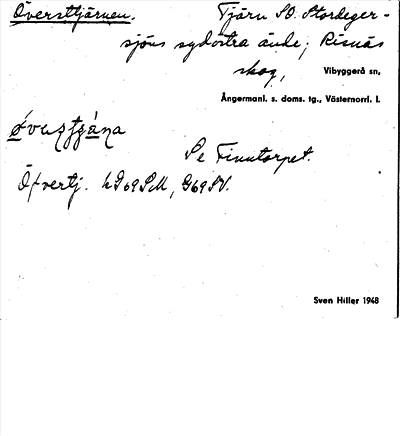 Översttjärnen. Tjärn SO. Stordeger-
sjöns sydöstra ände; Risnäs
skog, Vibyggerå sn,
Ångermanl. s. doms. tg., Västernorrl. l.
Se Finntorpet.
Öfvertj. hD69SM, G69SV.
Sven Hiller 1948